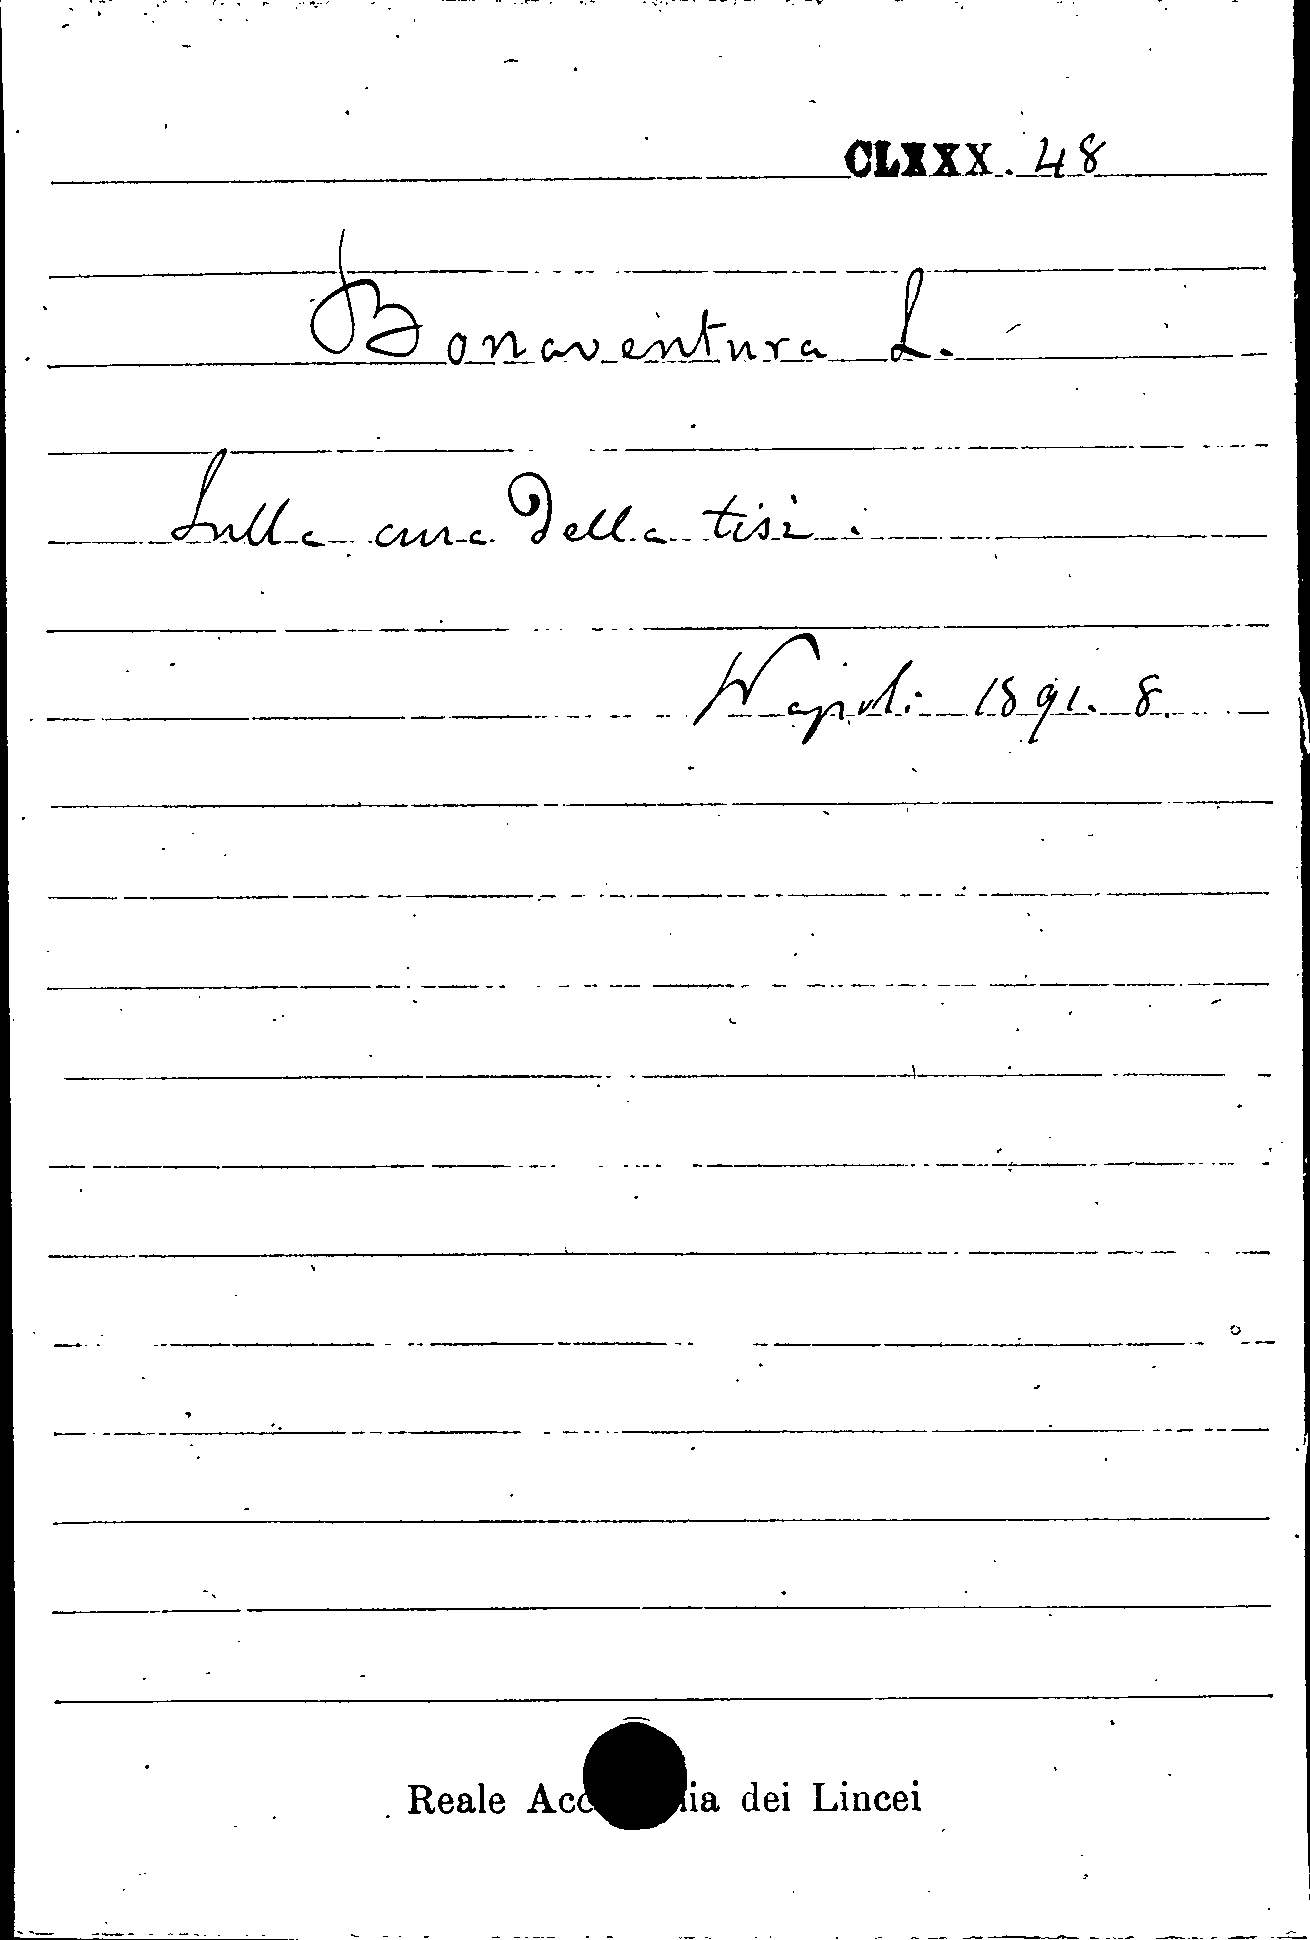 CLXXX. 48
Bonaventura L.
Sulla cura della tisi.
Napoli 1891. 8.
Reale dei Lincei